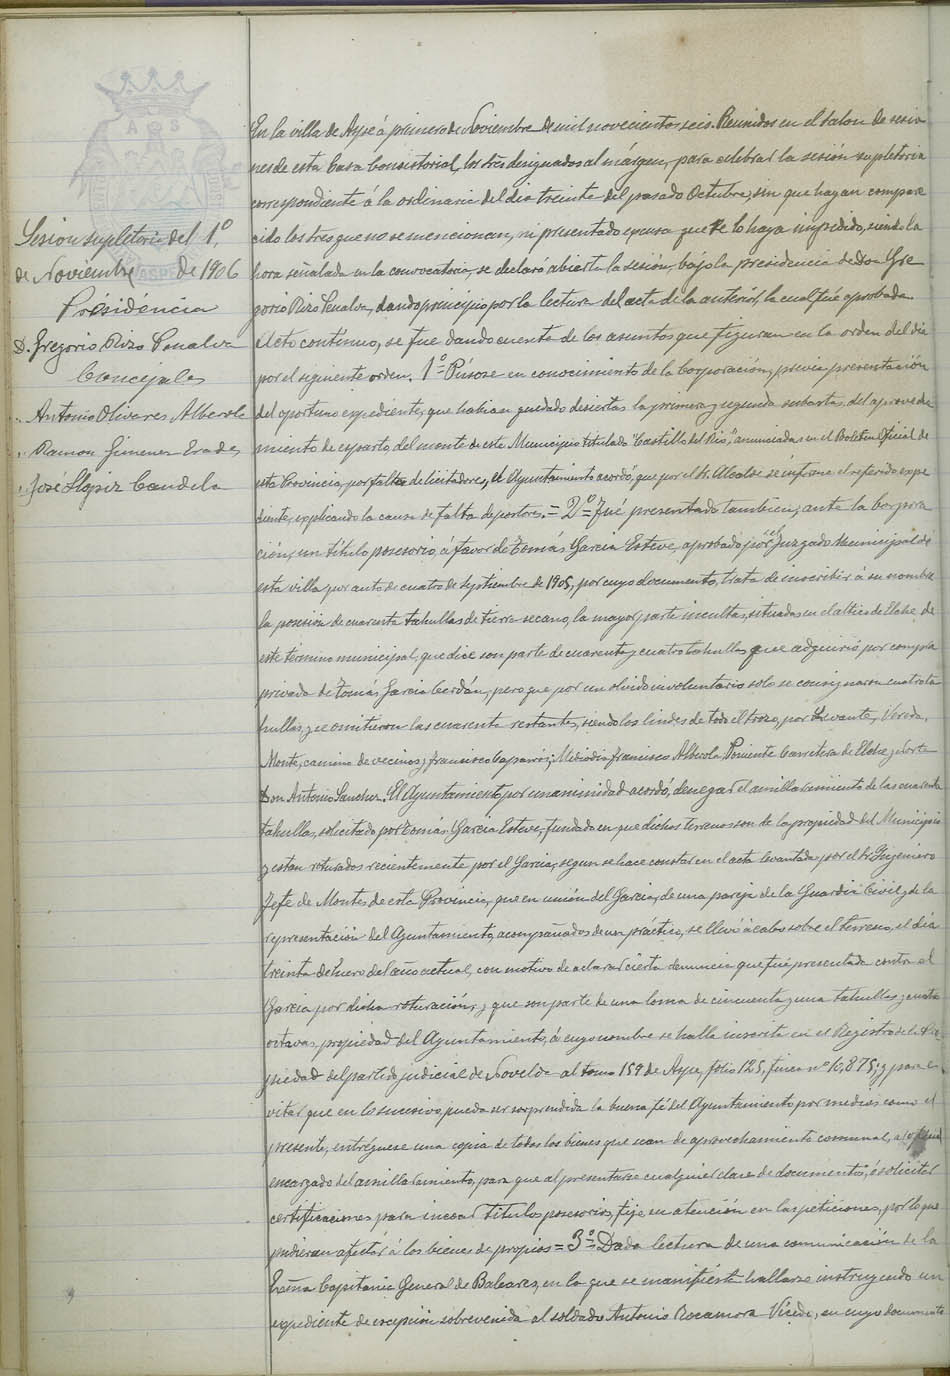 Sesion supletoria del 1º,
de Noviembre de 1906
Présidéncia
D. Gregorio Rizo Penalva
Concejales
„ Antonio Olivares Alberola
„ Ramon Gimenez Erades
„ José Llopiz Candela
En la villa de Aspe á primero de Noviembre de mil novecientos seis. Reunidos en el salon de sesio
nes de esta Casa Consistorial, los sres designados al márgen, para celebrar la sesión supletoria
correspondiente á la ordinaria del dia treinta del pasado Octubre, sin que hayan compare
cido los sres que no se mencionan, ni presentado escusa que se lo haya impedido, siendo la
hora señalada en la convocatoria, se declaró abierta la sesión, bajo la presidencia de Don Gre
gorio Rizo Penalva, dando principio por la lectura del acta de la anterior, la cual fué aprobada.
Acto contínuo, se fue dando cuenta de los asuntos que figuran en la orden del dia
por el siguiente orden. 1º = Púsose en conocimiento de la Corporación, previa presentación
del oportuno expediente, que habian quedado desiertas la primera y segunda subastas, del aprovecha
miento de esparto, del monte de este Municipio titulado "Castillo del Rio," anunciadas en el Boletin Oficial de
esta Provincia, por falta de licitadores, el Ayuntamiento acordó, que por el Sr. Alcalde se informe el referido expe
diente, explicando la causa de falta de postores. = 2º = Fué presentado tambien, ante la Corpora
ción, un título posesorio, á favor de Tomás Garcia Esteve, aprobado por el Juzgado Municipal de
esta villa por auto de cuatro de Septiembre de 1905, por cuyo documento, trata de inscribir á su nombre
la posesión de cuarenta tahullas de tierra secano, la mayor parte incultas, situadas en el altico de Elche, de
este termino municipal, que dice son parte de cuarenta y cuatro tahullas que adquirió por compra
privada de Tomás Garcia Cerdán, pero que por un olvido involuntario solo se consignaron cuatro ta
hullas, y se omitieron las cuarenta restantes, siendo los lindes de todo el trozo, por Levante, Vereda,
Monte, camino de vecinos y francisco Caparrós; Mediodia francisco Alberola, Poniente Carretera de Elche y Norte
Don Antonio Sanchez. El Ayuntamiento por unanimidad acordó, denegar el amillaramiento de las cuarenta
tahullas, solicitado por Tomás Garcia Esteve, fundado en que dichos terrenos son de la propiedad del Municipio
y estan roturados recientemente por el Garcia, segun se hace constar en el acta levantada por el Sr. Ingeniero
Jefe de Montes de esta Provincia, que en unión del Garcia, de una pareja de la Guardia Civil, y de la
representación del Ayuntamiento, acompañados de un práctico, se llevó á cabo sobre el terreno, el dia
treinta de Enero del año actual, con motivo de aclarar cierta denuncia que fué presentada contra el
Garcia por dicha roturación, y que son parte de una loma de cincuenta y una tahullas y cuatro
octavas, propiedad del Ayuntamiento, á cuyo nombre se halla inscrita en el Registro de la Pro
piedad del partido judicial de Novelda al tomo 159 de Aspe, folio 125, finca nº 10,875; y para e
vitar que en lo sucesivo pueda ser sorprendida la buena fé del Ayuntamiento por medios como el
presente, entréguese una copia de todos los bienes que sean de aprovechamiento comunal, al oficial
encargado del amillaramiento, para que al presentarse cualquier clase de documentos, ó solicitar
certificaciones para incoar titulos posesorios, fije su atención en las peticiones, por lo que
pudieran afectar á los bienes de propios = 3º = Dada lectura de una comunicación de la
Exma Capitania General de Baleares, en la que se manifiesta hallarse instruyendo un
expediente de excepción sobrevenida al soldado Antonio Rocamora Vicedo, en cuyo documento